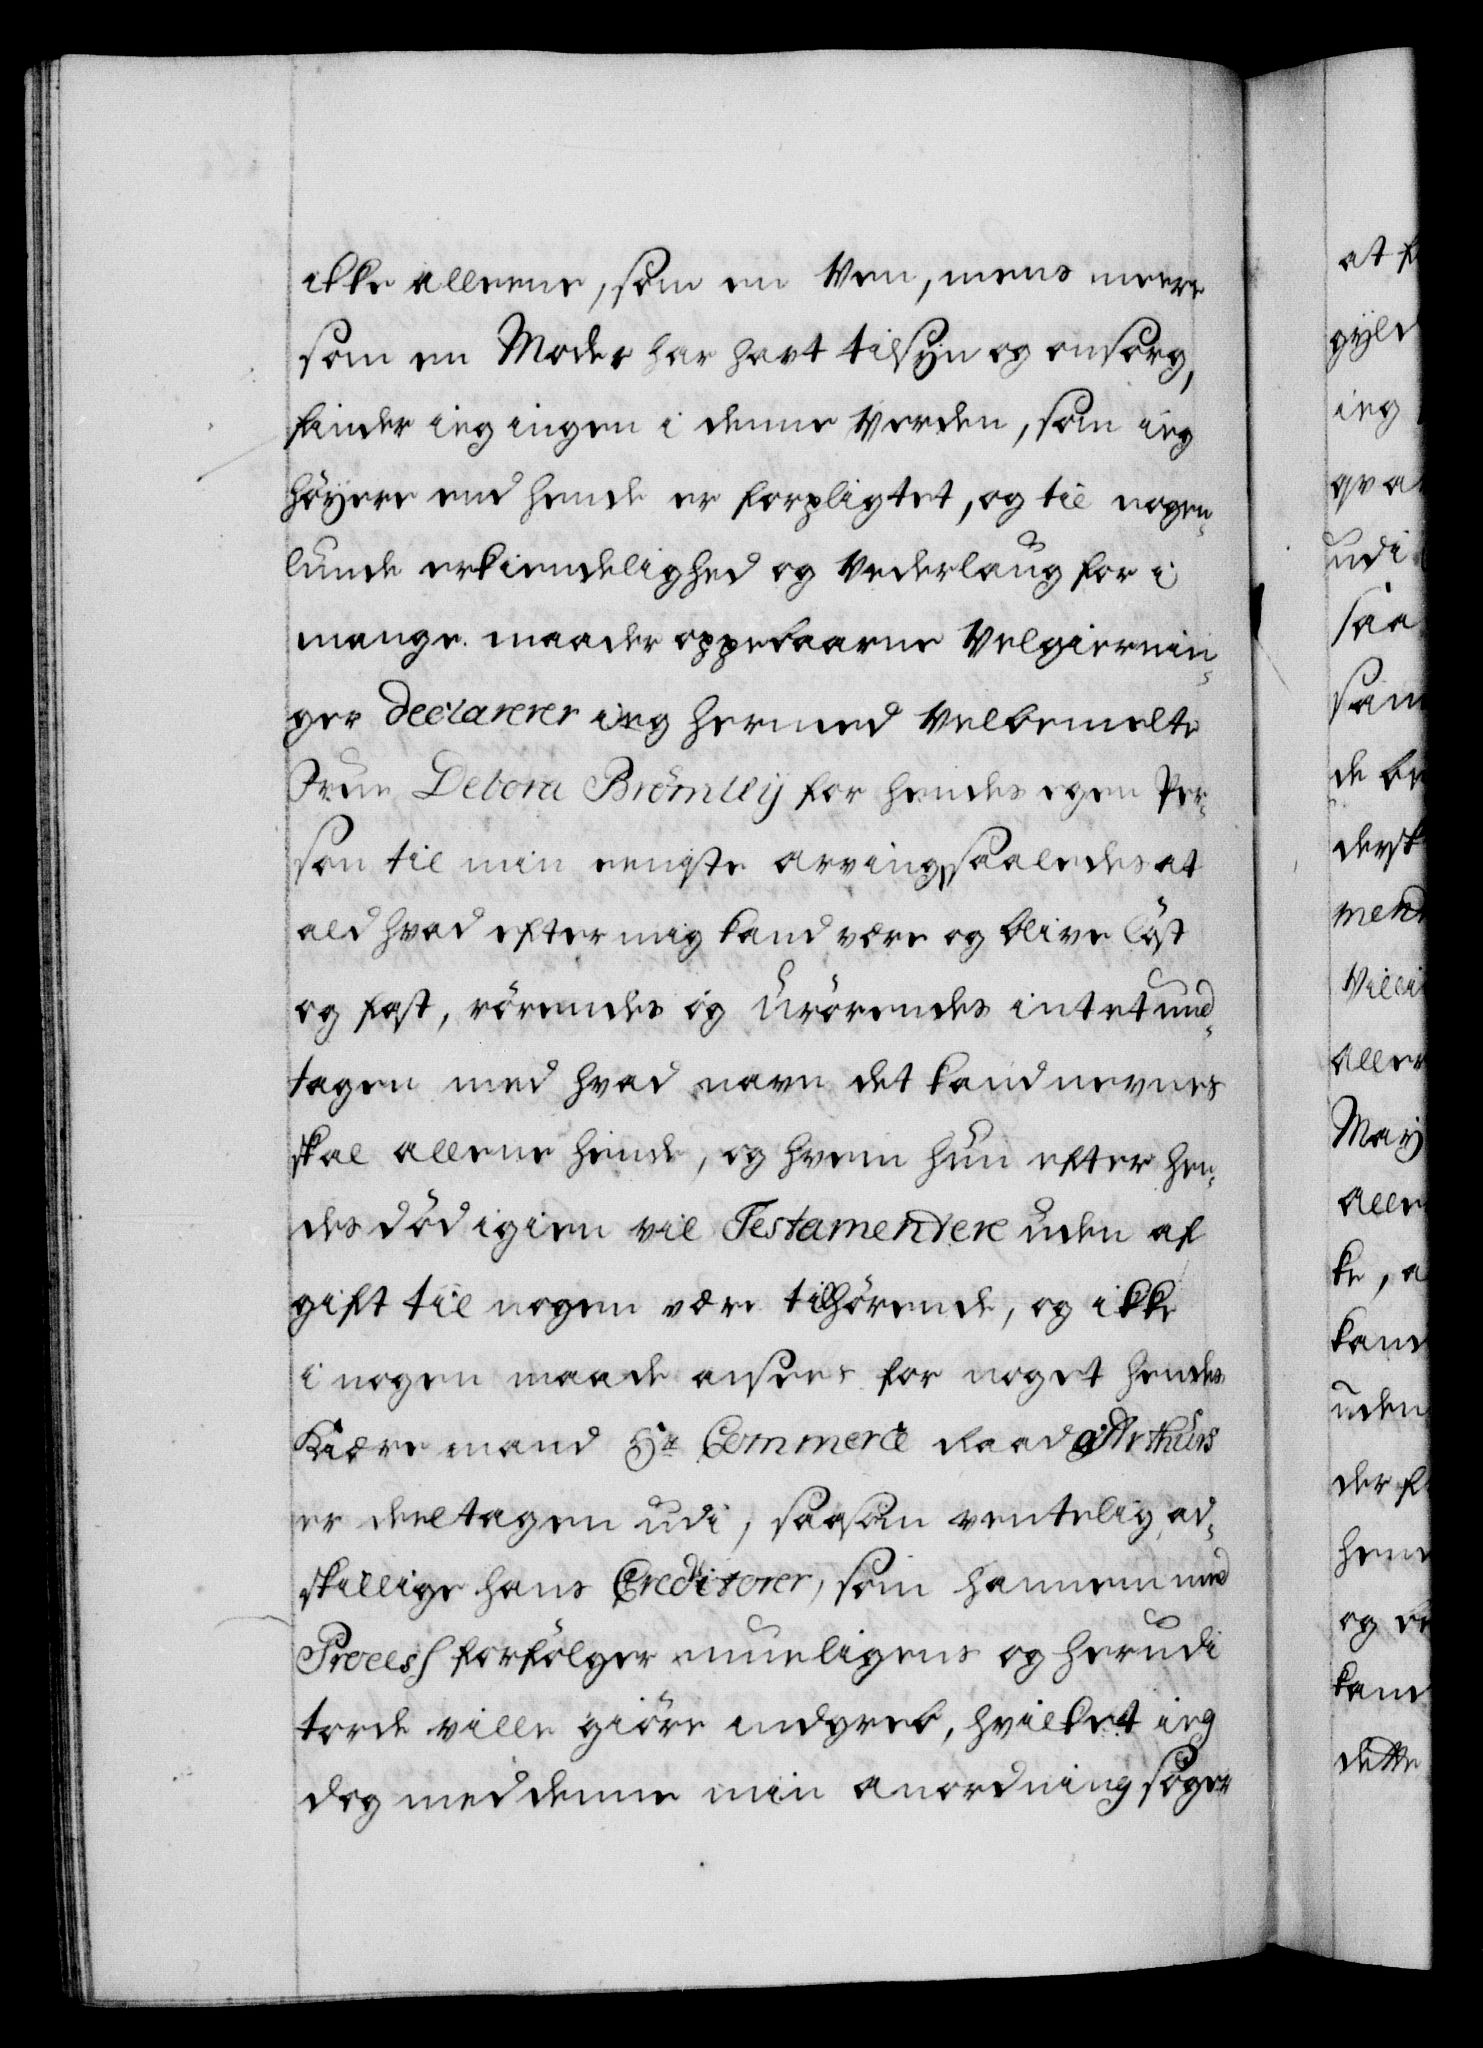 ikke alleene, som en Ven, mens meere
som en Moder har havt tilsyn og omsorg,
finder ieg ingen i denne Verden, som ieg
höyere end hende er forpligtet, og til nogen¬
lunde erkiendelighed og Vederlaug for i
mange maader oppebaarne Velgiernin¬
ger declarerer ieg hermed Velbemelte
Frue Debora Brömlly for hendes egen Per¬
son til min eeniste arving, saaledes at
ald hvad efter mig kand være og blive löst
og fast, rörendes og Urörendes intet und¬
tagen med hvad navn det kand nevnes
skal allene hende, og hvem hun efter hen¬
des död igien vil Testamentere uden af
gift til nogen være tilhörende, og ikke
i nogen maade ansees for noget hendes
Kiære mand Hr. Commerce Raad Arthurs
er deeltagen udi, saasom ventelig ad¬
skillige hans Creditorer, som hannem med
Process forfölger mueligens og herudi
torde ville giöre indgreb, hvilket ieg
dog med denne min anordning söger
at
gyld
ieg
qva
udi
saa
som
de be
dersk
ment
Villi
aller
May
alle
ke, a
kand
uden
der f
hen
og
kand
dette